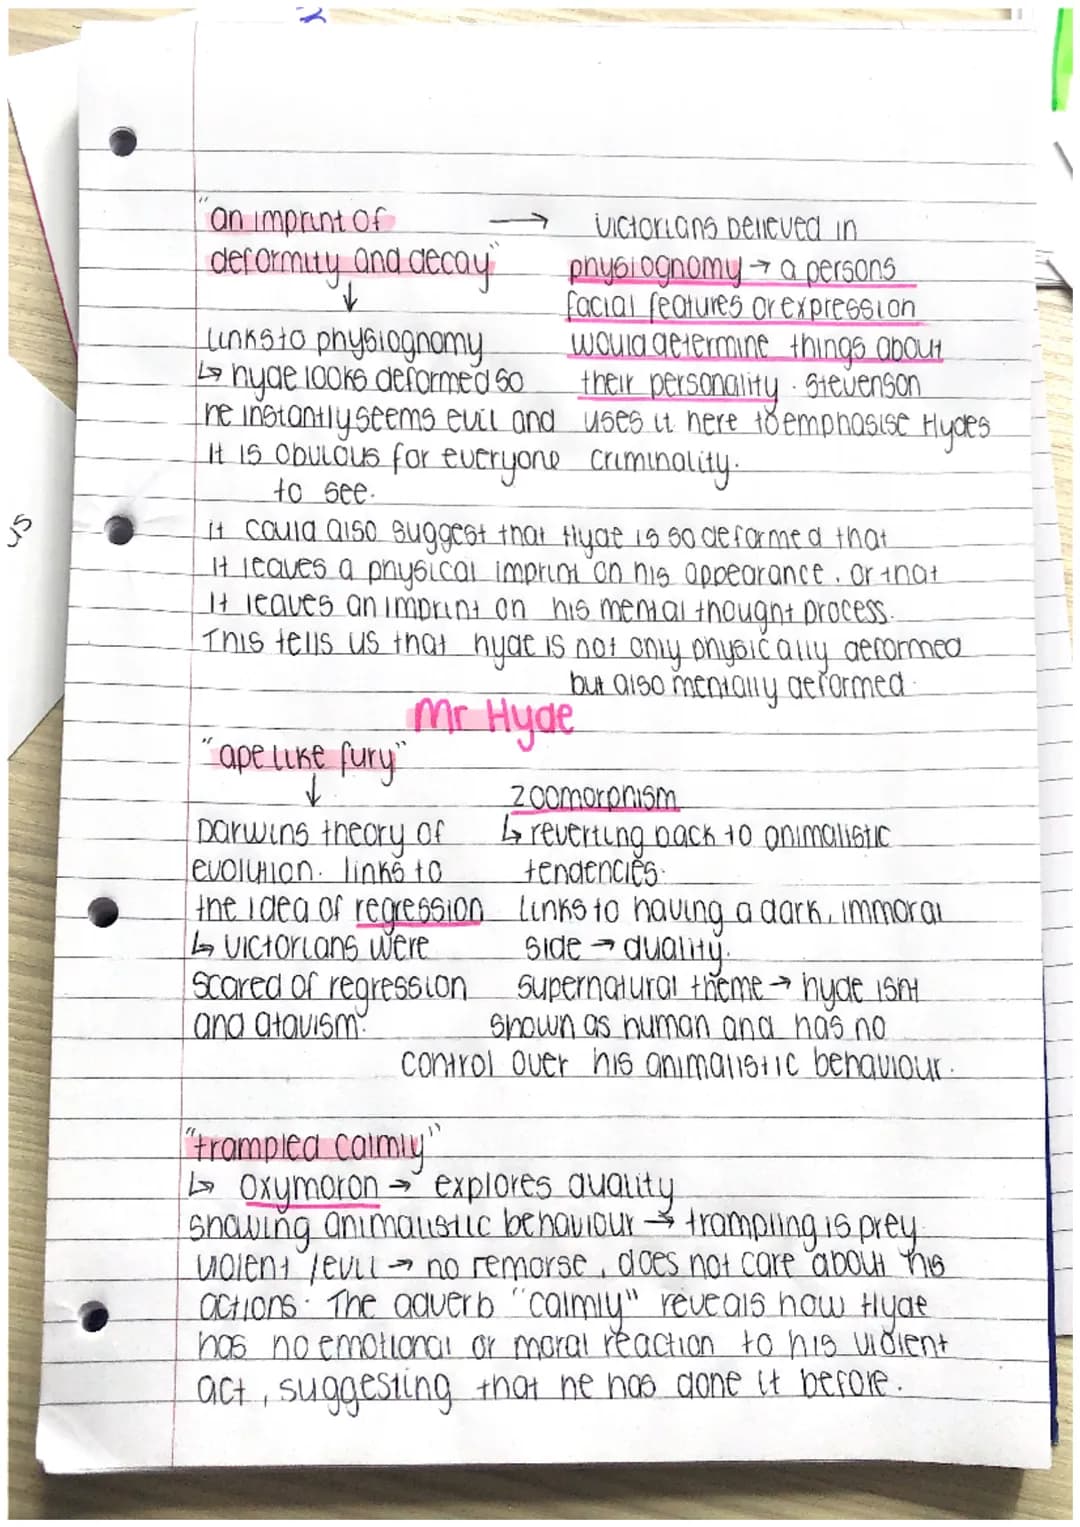 "an imprint of
deformity and decay"
↓
Links to physiognomy
↳ hyde looks deformed so
he instantly seems evil and
it is obvious for everyone
to see.
→ victorians believed in
physiognomy → a persons
facial features or expression
would determine things about
their personality. Stevenson
uses it here to emphasise Hydes
criminality.
it could also suggest that Hyde is so deformed that
it leaves a physical imprint on his appearance. or that
it leaves an imprint on his mental thought process.
This tells us that hyde is not only physically deformed
but also mentally deformed.
Mr Hyde
"ape like fury"
↓
Darwins theory of
evolution. links to
the idea of regression
↳ victorians were
scared of regression
and atavism.
zoomorphism
↳ reverting back to animalistic
tendencies.
Links to having a dark, immoral
side → duality.
supernatural theme → hyde isnt
shown as human and has no
control over his animalistic behaviour.
"trampled calmly"
↳ oxymoron → explores duality
showing animalistic behaviour → trampling is prey
violent / evil → no remorse, does not care about his
actions. The adverb "calmly" reveals how Hyde
has no emotional or moral reaction to his violent
act, suggesting that he has done it before.